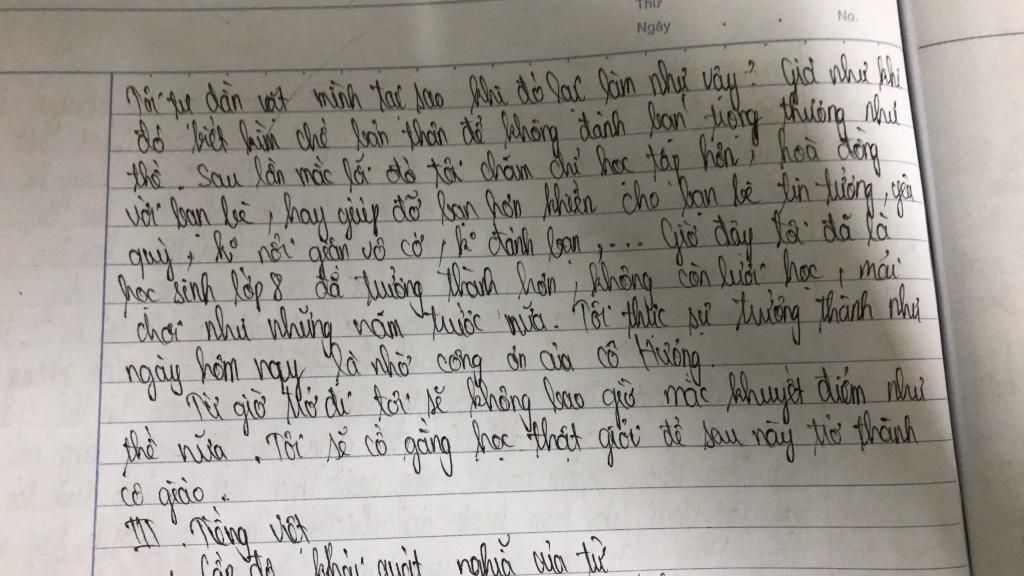 Thứ
Ngày
No.
Tôi tự dằn vặt mình tại sao khi đó lại làm như vậy? Giá như khi
đó biết kiềm chế bản thân để không đánh bạn tương thương như
thế. Sau lần mắc lỗi đó tôi chăm chỉ học tập hơn, hoà đồng
với bạn bè, hay giúp đỡ bạn hơn khiến cho bạn bè tin tưởng, yêu
quý, k° nổi giận vô cớ, k° đánh bạn,... Giờ đây tôi đã là
học sinh lớp 8 đã trưởng thành hơn, không còn lười học, mải
chơi như những năm trước nữa. Tôi thực sự trưởng thành như
ngày hôm nay là nhờ công ơn của cô Hương.
Từ giờ trở đi tôi sẽ không bao giờ mắc khuyết điểm như
thế nữa. Tôi sẽ cố gắng học thật giỏi để sau này trở thành
cô giáo.
III. Tiếng việt
Cấp độ khái quát nghĩa của từ